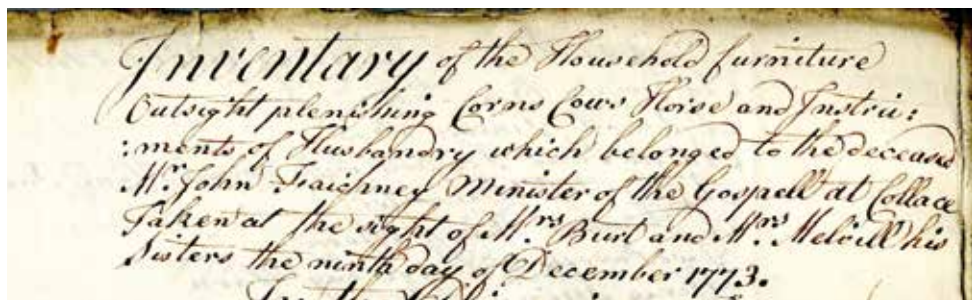 Inventary of the Household furniture
Outsight plenishing Corns Cows Horse and Instru:
:ments of Husbandry which belonged to the deceased
Mr. John Faichney Minister of the Gospell at Collace
Taken at the sight of Mrs Burt and Mrs Melvill his
Sisters the ninth day of December 1773.
In the